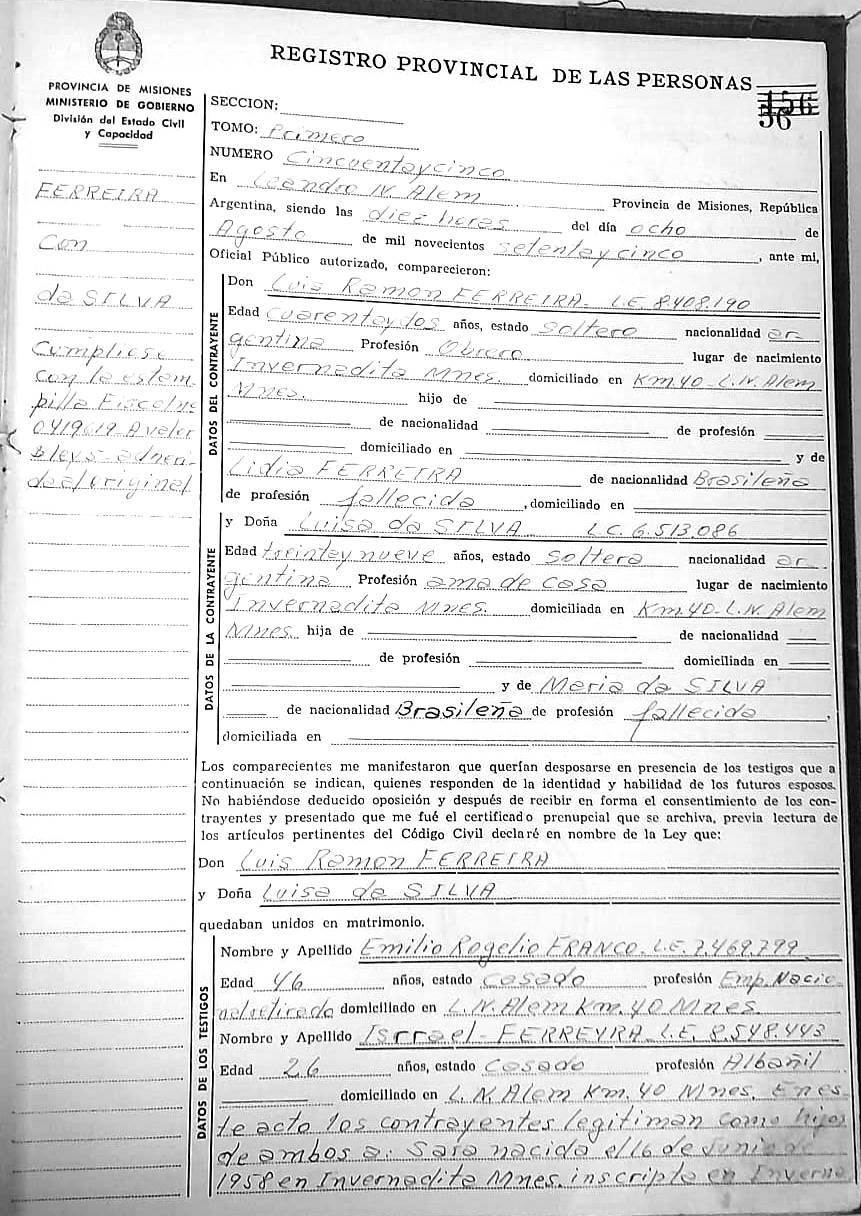 REGISTRO PROVINCIAL DE LAS PERSONAS
156
56
PROVINCIA DE MISIONES
MINISTERIO DE GOBIERNO
División del Estado Civil
y Capacidad
FERREIRA
Con
da SILVA
Cumpliese
con la estam
pilla Fiscal no
0419619 A valor
adheri
da al original
SECCION:
TOMO: Primero
NUMERO Cincuentaycinco
En Leandro N. Alem Provincia de Misiones, República
Argentina, siendo las diez horas del día ocho de
Agosto de mil novecientos setentaycinco, ante mi,
Oficial Público autorizado, comparecieron:
DATOS DEL CONTRAYENTE
Don Luis Ramon FERREIRA. L.E. 8.408.190
Edad cuarentaydos años, estado Soltero nacionalidad ar
gentina Profesión Obrero lugar de nacimiento
Invernadita Mnes. domiciliado en Km. 40 - L.N. Alem
Mnes. hijo de
de nacionalidad de profesión
domiciliado en y de
Lidia FERREIRA de nacionalidad Brasileña
de profesión fallecida, domiciliado en
DATOS DE LA CONTRAYENTE
y Doña Luisa da SILVA L.C. 6.513.086
Edad treintaynueve años, estado Soltera nacionalidad ar
gentina Profesión ama de casa lugar de nacimiento
Invernadita Mnes. domiciliada en Km. 40 - L.N. Alem
Mnes. hija de de nacionalidad
de profesión domiciliada en
y de Maria da SILVA
de nacionalidad Brasileña de profesión fallecida,
domiciliada en
Los comparecientes me manifestaron que querían desposarse en presencia de los testigos que a
continuación se indican, quienes responden de la identidad y habilidad de los futuros esposos.
No habiéndose deducido oposición y después de recibir en forma el consentimiento de los con-
trayentes y presentado que me fué el certificado prenupcial que se archiva, previa lectura de
los artículos pertinentes del Código Civil declaré en nombre de la Ley que:
Don Luis Ramon FERREIRA
y Doña Luisa da SILVA
quedaban unidos en matrimonio.
DATOS DE LOS TESTIGOS
Nombre y Apellido Emilio Rogelio FRANCO. L.E. 7.469.799
Edad 46 años, estado Casado profesión Emp. Nacio
nal retirado domiciliado en L.N. Alem Km. 40 Mnes.
Nombre y Apellido Isrrael - FERREYRA L.E. 8.548.443
Edad 26 años, estado Casado profesión Albañil
domiciliado en L.N. Alem Km. 40 Mnes. En es
te acto los contrayentes legitiman como hijos
de ambos a: Sara nacida el 16 de Junio de
1958 en Invernadita Mnes. inscripta en Inverna